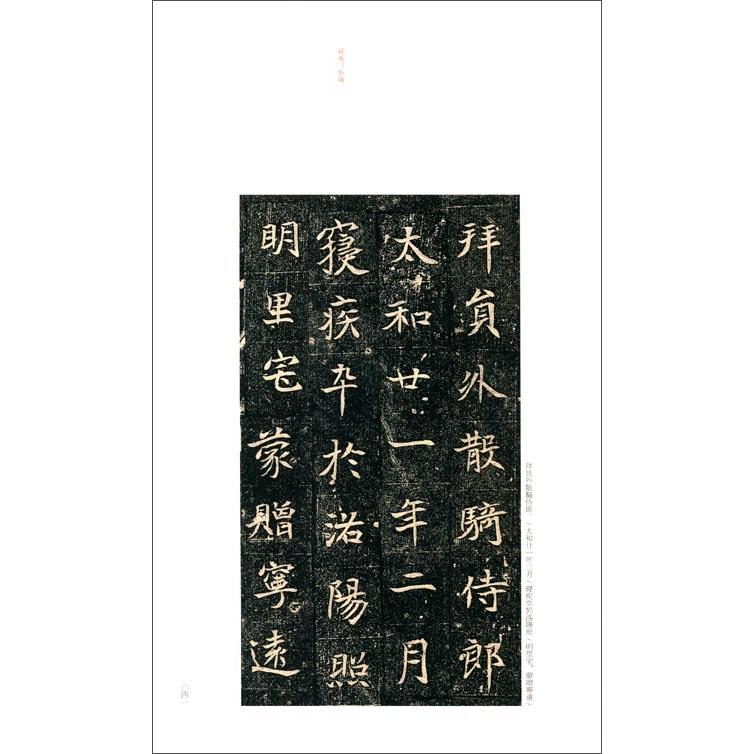 寝疾：卧病。
拜員外散騎侍郎
太和廿一年二月
寝疾卒於洛陽照
明里宅蒙贈寧遠
拜員外散騎侍郎。/太和廿一年二月/寝疾卒於洛陽照/明里宅。蒙贈寧遠/
〇四一